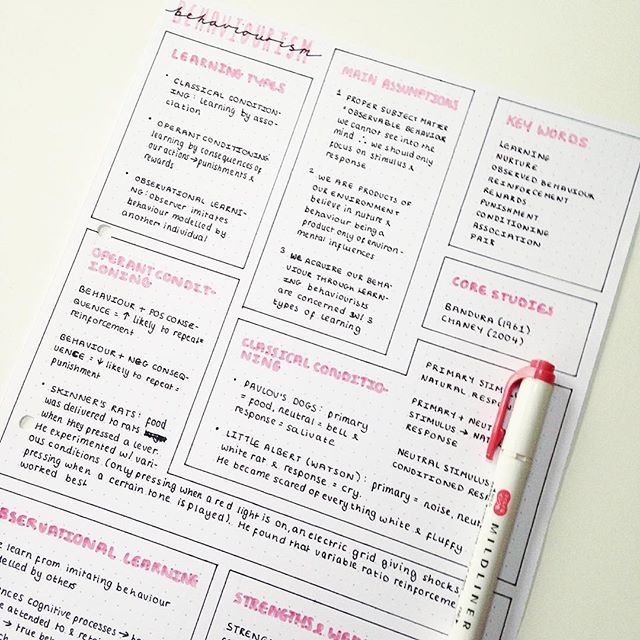 BEHAVIOURISM
behaviourism
LEARNING TYPES
• CLASSICAL CONDITION-
ING: learning by asso-
ciation
• OPERANT CONDITIONING
learning by consequences of
our actions → punishments &
rewards
• OBSERVATIONAL LEARNI-
NG: observer imitates
behaviour modelled by
another individual
MAIN ASSUMPTIONS
1 PROPER SUBJECT MATTER
• OBSERVABLE BEHAVIOUR
we cannot see into the
mind ∴ we should only
focus on stimulus &
response
2 WE ARE PRODUCTS OF
OUR ENVIRONMENT
believe in nuture &
behaviour being a
product only of environ-
mental influences
3 WE ACQUIRE OUR BEHA-
VIOUR THROUGH LEARN-
ING behaviourists
are concerned w/ 3
types of learning
KEY WORDS
LEARNING
NURTURE
OBSERVED BEHAVIOUR
REINFORCEMENT
REWARDS
PUNISHMENT
CONDITIONING
ASSOCIATION
PAIR
CORE STUDIES
BANDURA (1961)
CHANEY (2004)
OPERANT CONDIT-
IONING
BEHAVIOUR + POS CONSE-
QUENCE = ↑ likely to repeat =
reinforcement
BEHAVIOUR + NEG CONSEQ-
UENCE = ↓ likely to repeat =
punishment
• SKINNER'S RATS: food
was delivered to rats
when they pressed a lever.
He experimented w/ vari-
ous conditions (only pressing when a red light is on, an electric grid giving shocks,
pressing when a certain tone is played). He found that variable ratio reinforceme
worked best
CLASSICAL CONDITIO-
NING
• PAVLOV'S DOGS: primary
= food, neutral = bell &
response = salivate
• LITTLE ALBERT (WATSON): primary = noise, neut
white rat & response = cry.
He became scared of everything white & fluffy
PRIMARY STIMUL
NATURAL RESPON
PRIMARY + NEUT
STIMULUS → NAT
RESPONSE
NEUTRAL STIMULUS
CONDITIONED RESP
OBSERVATIONAL LEARNING
e learn from imitating behaviour
delled by others
ences cognitive processes → to
e attended to & ret
→ true beh
STRENGTHS & WE
MILDLINER